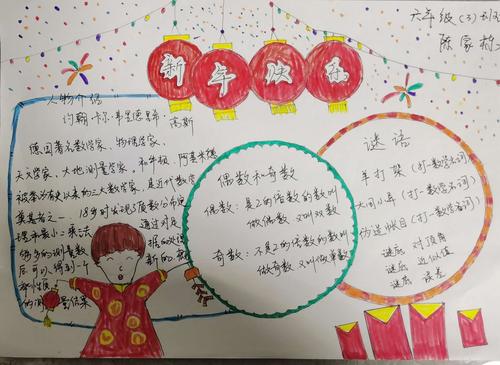 六年级（3）班
陈家
新年快乐
人物介绍
约翰·卡尔·弗里德里希·高斯
德国著名数学家、物理学家、
天文学家、大地测量学家，和牛顿、阿基米德
被誉为有史以来的三大数学家，是近代数学
奠基者之一，18岁时发现了质数分布定
理和最小二乘法
通过对足
够多的测量数
据的处理
后可以得到一个
新的
的测量结果
偶数和奇数
偶数：是2的倍数的数叫
做偶数 又叫双数
奇数：不是2的倍数的数叫
做奇数 又叫做单数
谜语
羊打架（打一数学名词）
大同小异（打一数学名词）
伪造帐目（打一数学名词）
谜底 对顶角
谜底 近似值
谜底 误差